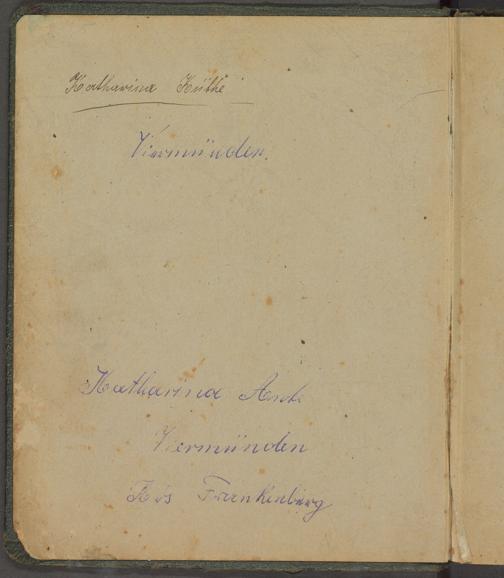 Katharina Küthe
Viermünden.
Katharina
Viermünden
Krs Frankenberg